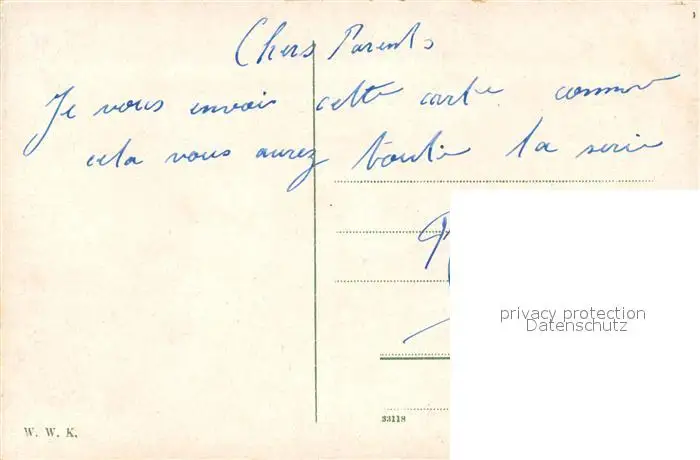 Chers Parents
Je vous envois cette carte comme
cela vous aurez toute la serie
privacy protection
Datenschutz
33118
W. W. K.